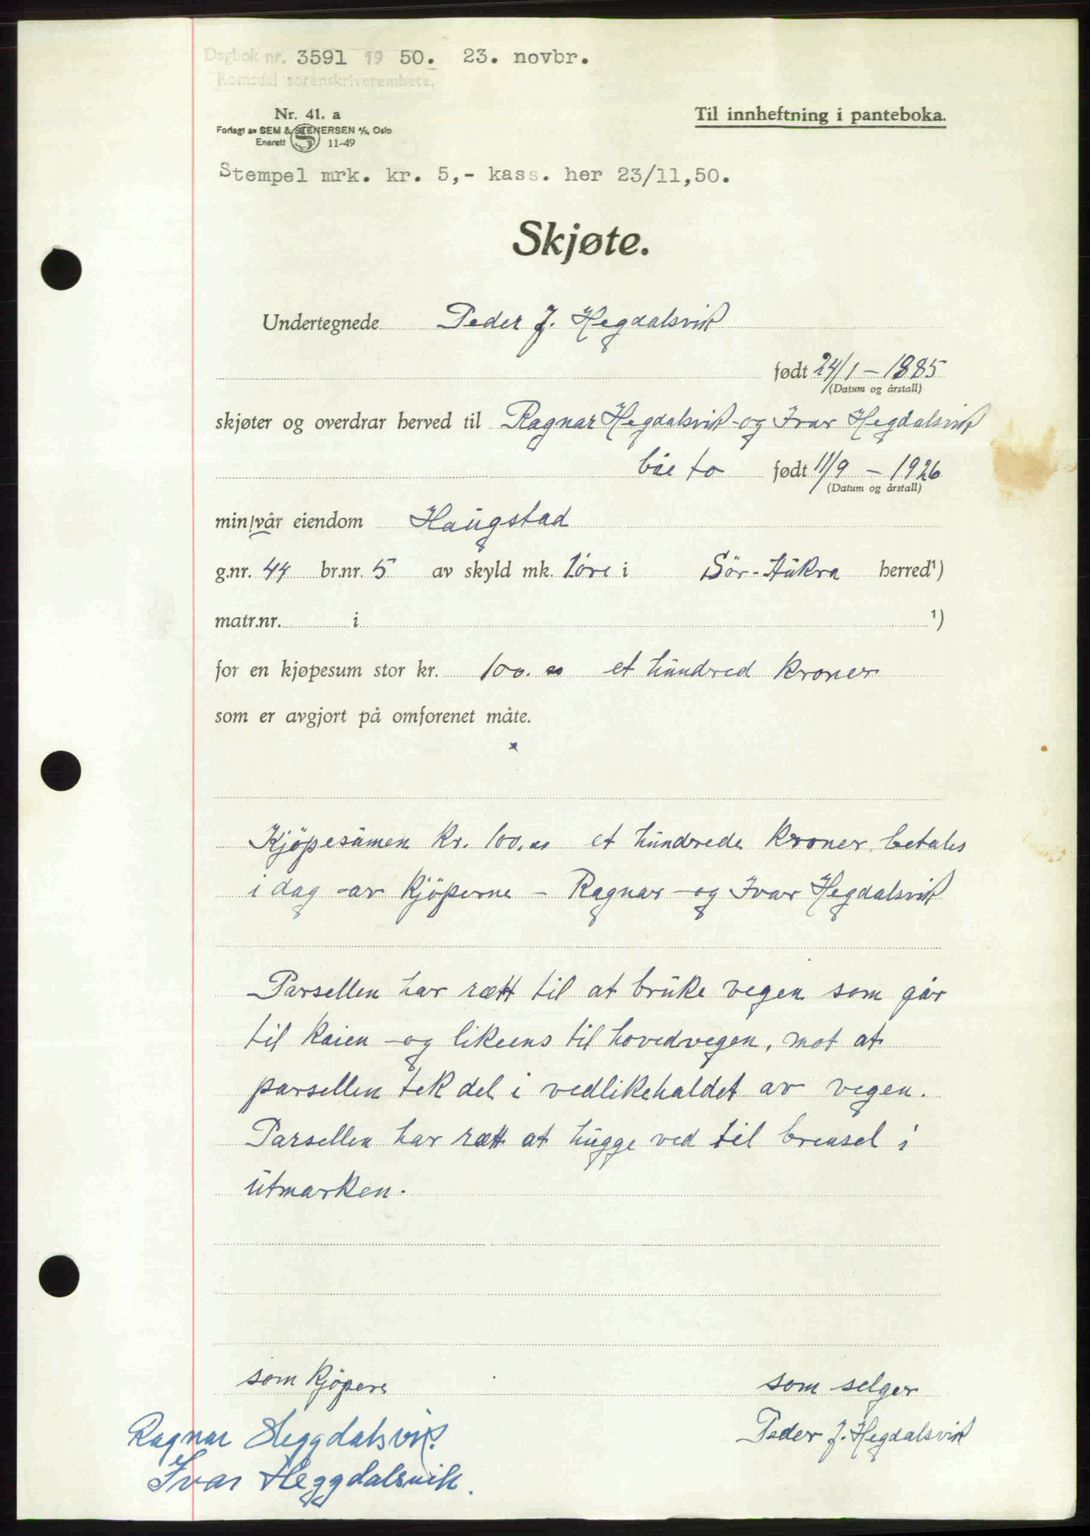 Dagbok nr. 3591 1950. 23. novbr.
Romsdal sorenskriverembete.
Nr. 41. a
Til innheftning i panteboka.
Forlagt av SEM & STENERSEN A/S, Oslo
Enerett 11-49
Stempel mrk. kr. 5,- kass. her 23/11,50.
Skjøte.
Undertegnede Peder J. Hegdalsvik
født 24/1 - 1885
(Datum og årstall)
skjøter og overdrar herved til Ragnar Hegdalsvik - og Ivar Hegdalsvik
båe to født 11/9 - 1926
(Datum og årstall)
min/vår eiendom Haugstad
g.nr. 44 br.nr. 5 av skyld mk. 1 öre i Sör-Aukra herred¹)
matr.nr. i ¹)
for en kjøpesum stor kr. 100.00 et hundred kroner
som er avgjort på omforenet måte.
Kjöpesumen kr. 100.00 et hundrede kroner, betales
i dag av kjöperne - Ragnar - og Ivar Hegdalsvik
Parsellen har rætt til at bruke vegen som går
til kaien - og likeens til hovedvegen, mot at
parsellen tek del i vedlikehaldet av vegen.
Parsellen har rætt at hugge ved til brensel i
utmarken.
som kjöpere
som selger
Ragnar Heggdalsvik.
Peder J. Hegdalsvik
Ivar Heggdalsvik.